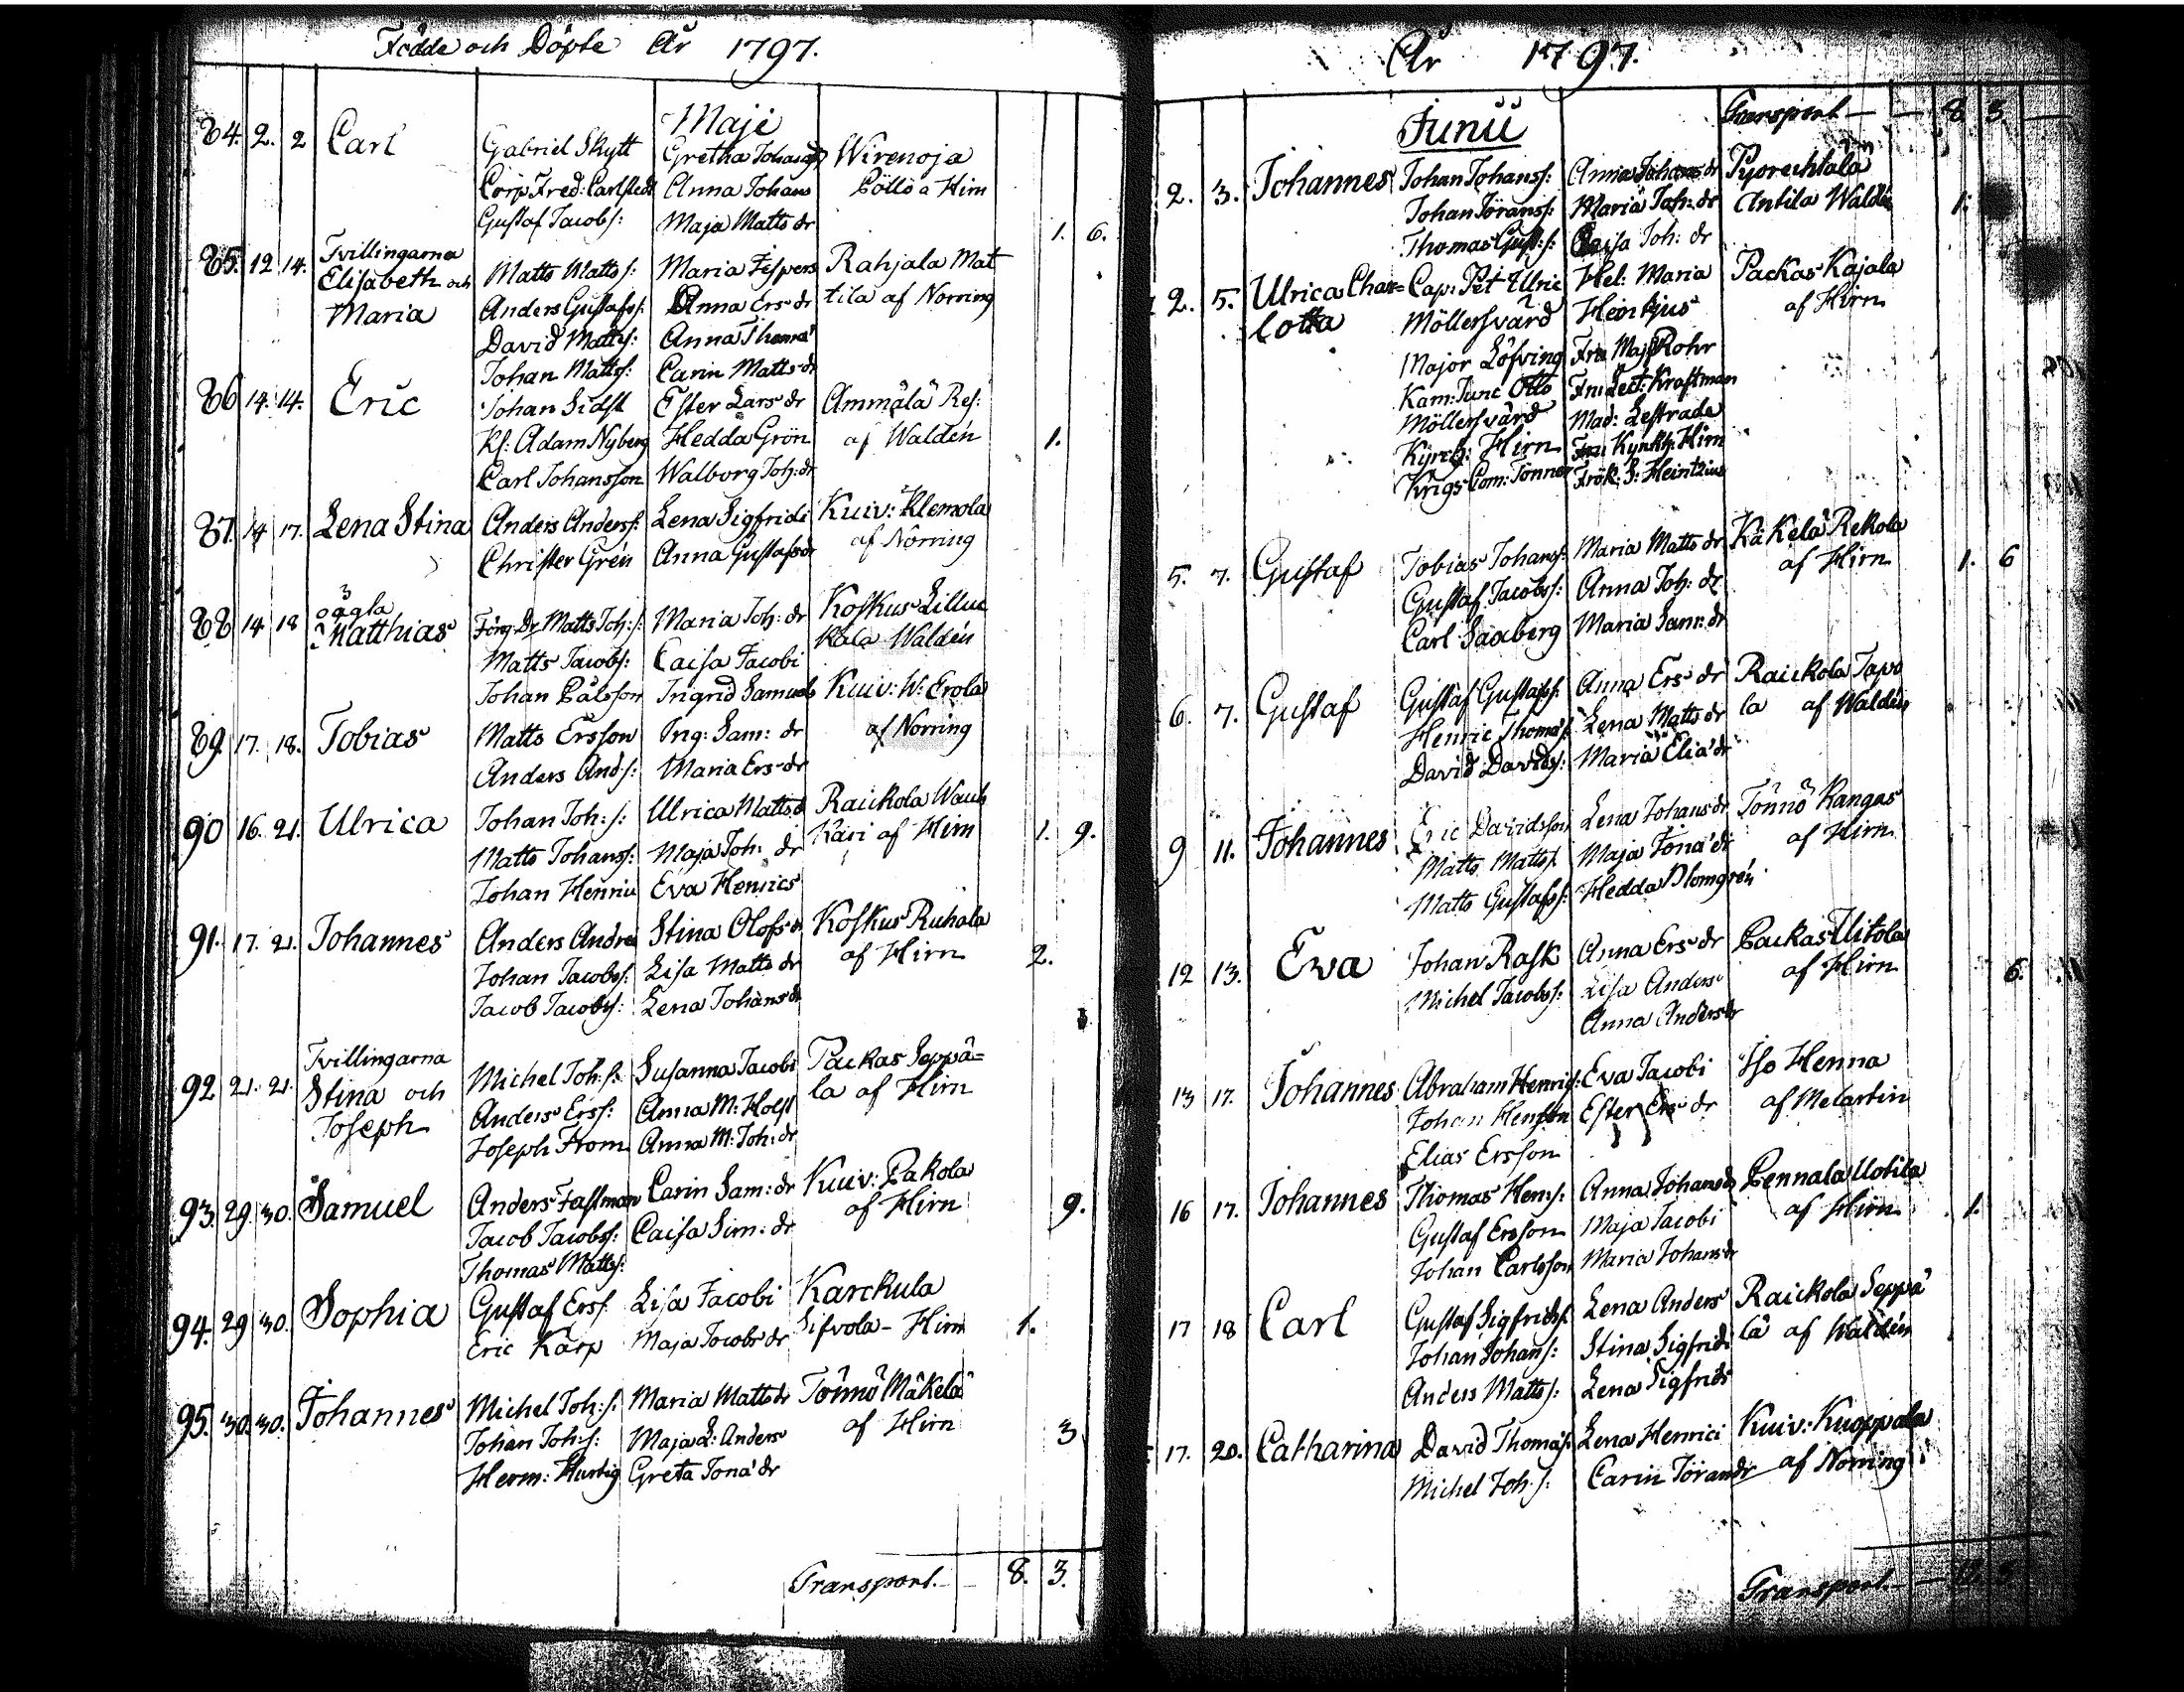 Födde och Döpte År 1797.
Maji
84. 2. 2 Carl Gabriel Skytt Gretha Johansdr Wirenoja
Corp. Fred: Carlstedt Anna Johans Pöllö a Hirn
Gustaf Jacobs: Maja Matts dr 1. 6.
85. 12 14. Tvillingarna
Elisabeth och Matts Matts: Maria Jespers Rahjala Mat
Maria Anders Gustafss: Anna Ers dr tila af Norring
David Matts: Anna Thoma'
Johan Matts: Carin Matts dr
86 14. 14. Eric Johan Sidst Ester Lars dr Ammälä Res:
Kl: Adam Nyberg Hedda Grön af Waldén 1.
Carl Johansson Walborg Joh: dr
87. 14 17. Lena Stina Anders Anders: Lena Sigfridi Kuiv: Klemola
Christer Gren Anna Gustafsdr af Norring
88 14 18 oägta Matthias Förg. Dr Matts Joh: s: Maria Joh: dr Koskus Lillu
Matts Jacobs: Caisa Jacobi kala Waldén
Johan Pålsson Ingrid Samuels
89. 17. 18. Tobias Matts Ersson Ing: Sam: dr Kuiv: W: Erola
Anders And s: Maria Ers dr af Norring
90 16. 21. Ulrica Johan Joh: s: Ulrica Matts d Raickola Wauh
Matts Johans: Maja Joh: dr käri af Hirn 1. 9.
Johan Henric Eva Henrics
91. 17. 21. Johannes Anders Andrea Stina Olofs dr Koskus Ruhala
Johan Jacobss: Lisa Matts dr af Hirn 2.
Jacob Jacobs: Lena Johans dr
92 21. 21. Tvillingarna
Stina och Michel Joh: s: Susanna Jacobi Packas Seppä=
Joseph Anders Erss: Anna M: Holst la af Hirn
Joseph From Anna M: Joh: dr
93. 29. 30. Samuel Anders Fastman Carin Sam: dr Kuiv: Pakola
Jacob Jacobss: Caisa Sim: dr af Hirn 9.
Thomas Matts:
94. 29 30. Sophia Gustaf Erss. Lisa Jacobi Karckula
Eric Karp Maja Jacobs dr Sifvola - Hirn 1.
95. 30. 30. Johannes Michel Joh: s: Maria Matts dr Tönnö Mäkelä
Johan Joh: s: Maja L: Anders af Hirn 3
Herm: Hurtig Greta Jona' dr
Transport. - 8. 3.
År 1797.
Junii Transport — — 8. 3. —
2. 3. Johannes Johan Johanss: Anna Johans dr Pyörechtälä
Johan Jörans: Maria Joh: dr Antila Waldén 1.
Thomas Gust: s: Caisa Joh: dr
2. 5. Ulrica Char= Cap: Pet Ulric Hel: Maria Packas Kajala
lotta Möllersvärd Heintzius af Hirn
Major Löfving Fru Maj: Rohr
Kam: Junc Otto Fru Lect: Kraftman
Möllersvärd Mad: Lestrade
Kyrch: Hirn Fru Kyrkh: Hirn
Krigs Com: Tönner Frök: S: Heintzius
5. 7. Gustaf Tobias Johans: Maria Matts dr Käkelä Rekola
Gustaf Jacobss: Anna Joh: dr af Hirn 1. 6
Carl Saxberg Maria Sam: dr
6. 7. Gustaf Gustaf Gustafss: Anna Ers dr Raickola Tapo
Henric Thoma's: Lena Matts dr la af Waldén
David Davids: Maria Elia' dr
9 11. Johannes Eric Davidsson Lena Johans dr Tönnö Kangas
Matts Matts: Maja Jona' dr af Hirn
Matts Gustafs: Hedda Blomgrén
12 13. Eva Johan Rask Anna Ers dr Packas Uitola
Michel Jacobss: Lisa Anders af Hirn 6.
Anna Anders dr
13 17. Johannes Abraham Henrics: Eva Jacobi Iso Henna
Johan Henson Ester Ers dr af Melartin
Elias Ersson
16 17. Johannes Thomas Hen: s: Anna Johans dr Pennala Uotila
Gustaf Ersson Maja Jacobi af Hirn 1.
Johan Carlsson Maria Johans dr
17 18 Carl Gustaf Sigfrids: Lena Anders Raickola Seppä
Johan Johans: Stina Sigfridi lä af Waldén
Anders Matts: Lena Sigfrids
17. 20. Catharina David Thoma's: Lena Henrici Kuiv: Kuoppala
Michel Joh: s: Carin Jörans dr af Norring
Transport. —